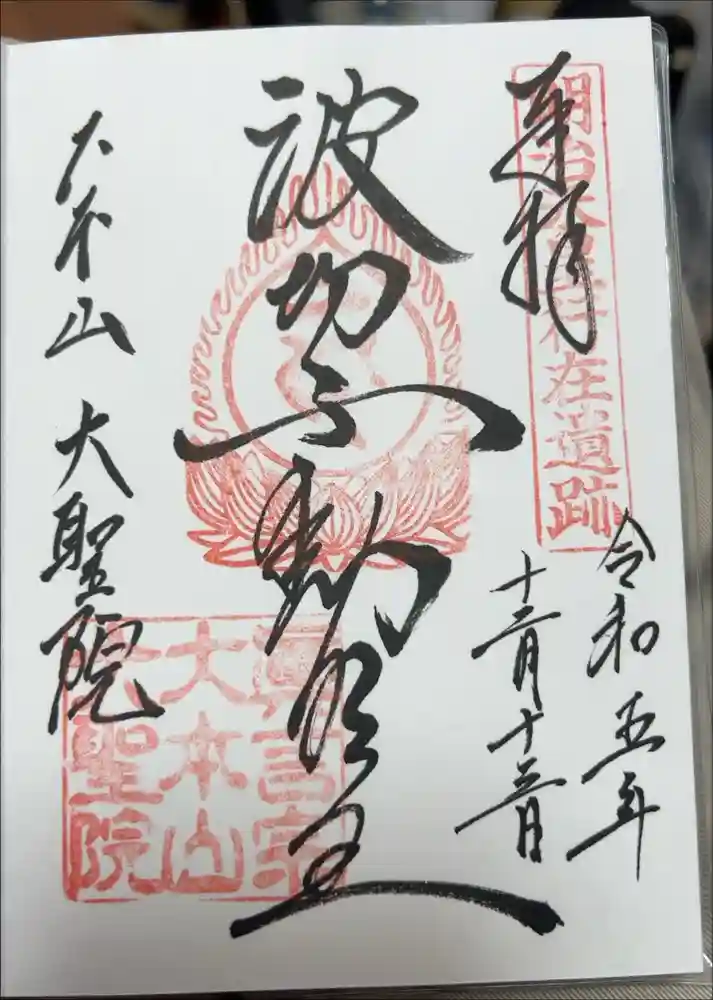 奉拝
明治天皇行在遺跡
令和五年
十二月十三日
波切不動明王
大本山 大聖院
眞言宗
大本山
大聖院